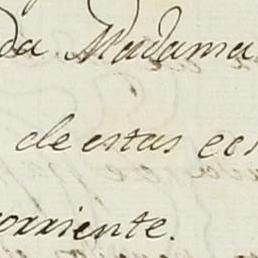 da Madama
de estas ee
orriente.